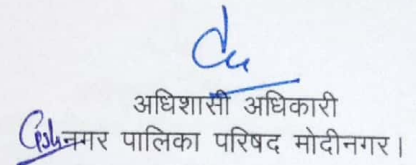 अधिशासी अधिकारी
नगर पालिका परिषद मोदीनगर।